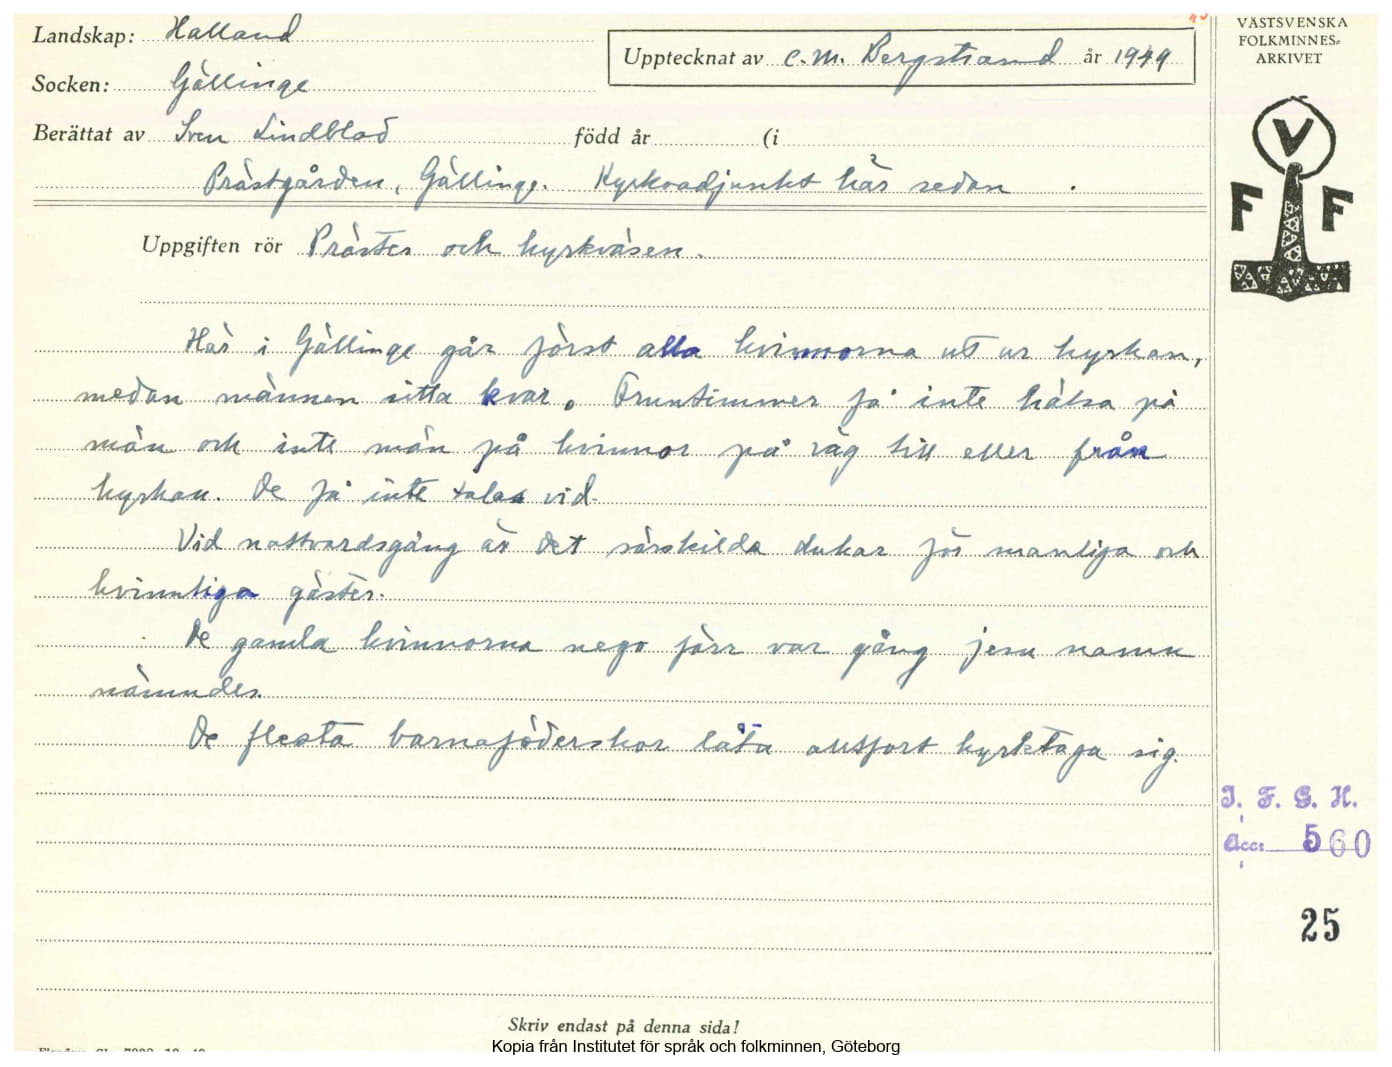 Landskap: Halland
Socken: Gällinge
Upptecknat av C. M. Bergstrand år 1949
Berättat av Sven Lindblad född år (i
Prästgården, Gällinge. Kyrkoadjunkt här sedan .
Uppgiften rör Präster och kyrkväsen.
Här i Gällinge går först alla kvinnorna ut ur kyrkan,
medan männen sitta kvar. Fruntimmer få inte hälsa på
män och inte män på kvinnor på väg till eller från
kyrkan. De få inte talas vid.
Vid nattvardsgång är det särskilda dukar för manliga och
kvinnliga gäster.
De gamla kvinnorna nego förr var gång Jesu namn
nämndes.
De flesta barnaföderskor låta alltfort kyrktaga sig.
VÄSTSVENSKA
FOLKMINNES-
ARKIVET
V
F F
I. F. G. H.
Acc: 560
25
Skriv endast på denna sida!
Kopia från Institutet för språk och folkminnen, Göteborg